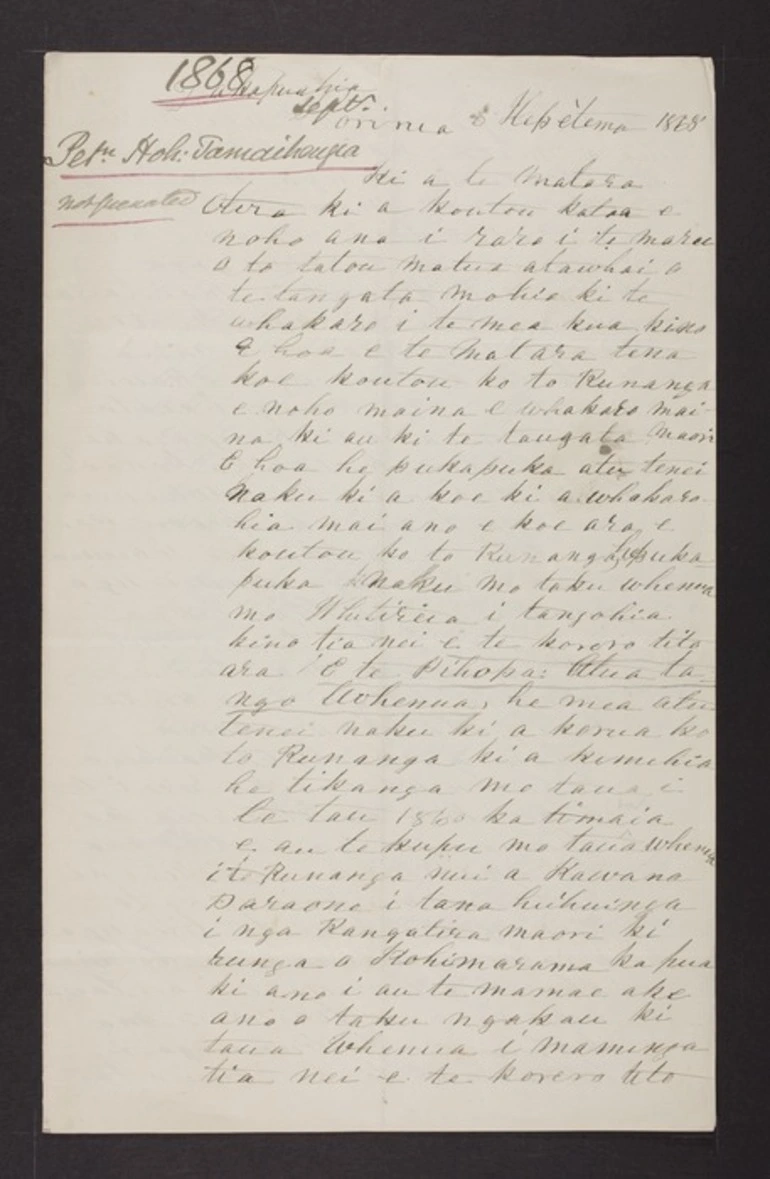 1868
Sept.
Porirua 8 Hepetema 1868
Petn Hohi Tamaihengia
not presented
Ki a te Matara
Otira ki a koutou katoa e
noho ana i raro i te maru
o to tatou matua atawhai o
te tangata mohio ki te
whakaro i te mea kua kino
E hoa e te Matara tena
koe koutou ko to Runanga
e noho maina e whakaro mai
na ki au ki te tangata Maori
E hoa he pukapuka atu tenei
Naku ki a koe ki a whakaro
hia mai ano e koe ara e
koutou ko to Runanga he puka
puka naku mo taku whenua
mo Whitireia i tangohia
kino tia nei e te korero tito
ara E te Pihopa: Atua ta
ngo Whenua, he mea atu
tenei naku ki a korua ko
to Runanga ki a kimihia
he tikanga mo taua i
te tau 1860 ka timaia
e au te kupu mo taua whenua
i te Runanga nui a Kawana
Paraone i tana huihuinga
i nga Rangatira maori ki
runga o Kohimarama ka pua
ki ano i au te mamae ake
ano o taku ngakau ki
taua Whenua i maminga
tia nei e te korero tito